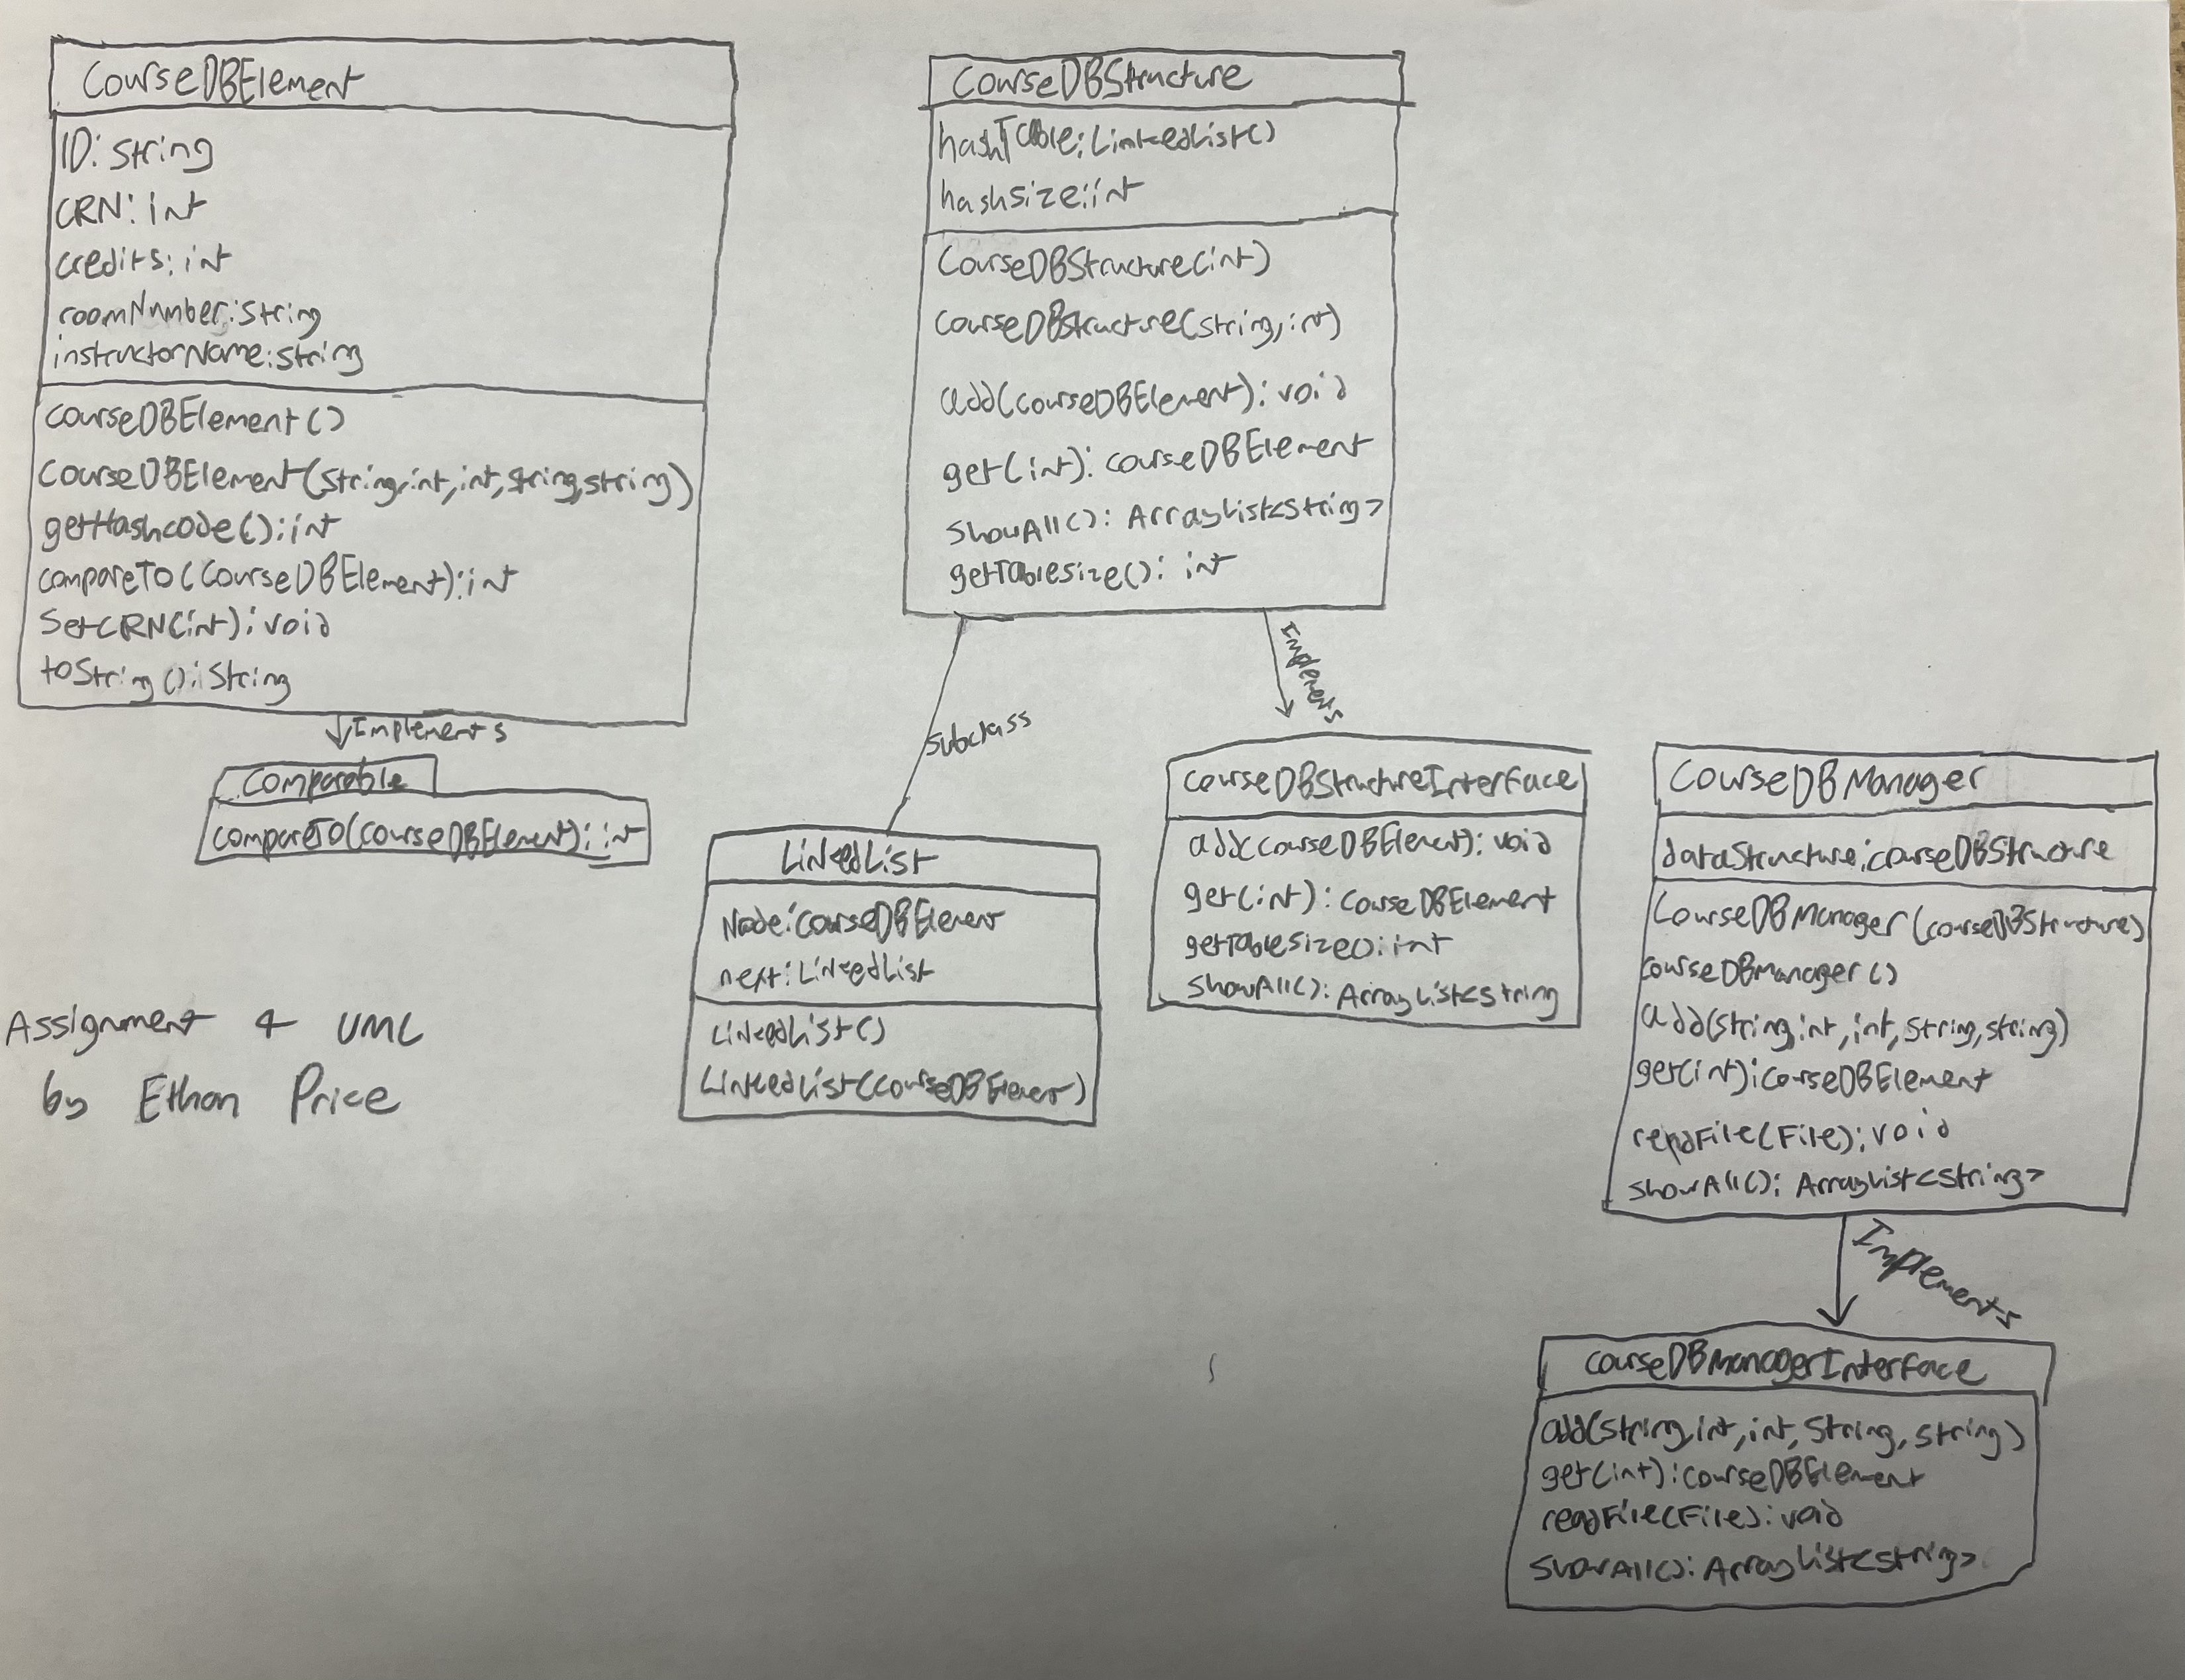 CourseDBElement
ID: String
CRN: int
credits: int
roomNumber: String
instructorName: String
courseDBElement()
CourseDBElement(String,int,int,String,String)
getHashcode(): int
compareTo(CourseDBElement): int
SetCRN(int): void
toString(): String
Implements
Comparable
compareTo(CourseDBElement): int
CourseDBStructure
hashTable: LinkedList()
hashsize: int
CourseDBStructure(int)
courseDBStructure(String, int)
add(courseDBElement): void
get(int): courseDBElement
showAll(): ArrayList<String>
getTablesize(): int
subclass
Implements
LinkedList
Node: CourseDBElement
next: LinkedList
LinkedList()
LinkedList(CourseDBElement)
courseDBStructureInterface
add(courseDBElement): void
get(int): courseDBElement
getTableSize(): int
showAll(): ArrayList<String
CourseDBManager
dataStructure: courseDBStructure
CourseDBManager(courseDBStructure)
courseDBmanager()
add(String,int,int,String,String)
get(int): courseDBElement
readFile(File): void
showAll(): ArrayList<String>
Implements
courseDBManagerInterface
add(String,int,int,String,String)
get(int): courseDBElement
readFile(File): void
showAll(): ArrayList<String>
Assignment 4 UML
by Ethan Price